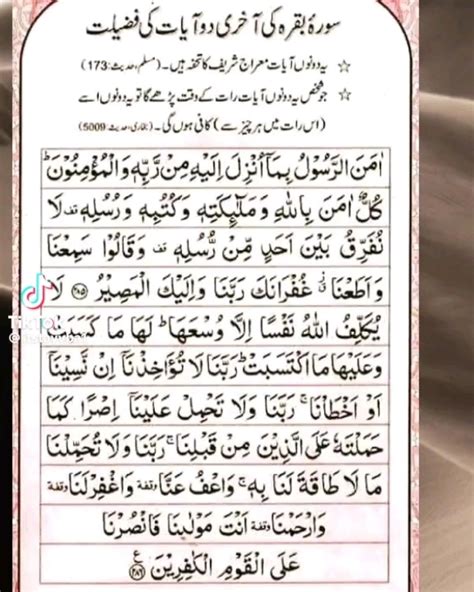 سورۂ بقرہ کی آخری دو آیات کی فضیلت
☆ یہ دونوں آیات معراج شریف کا تحفہ ہیں۔ (مسلم، حدیث:173)
☆ جو شخص یہ دونوں آیات رات کے وقت پڑھے گا تو یہ دونوں اسے
(اس رات میں ہر چیز سے) کافی ہوں گی۔ (بخاری، حدیث:5009)
اٰمَنَ الرَّسُوْلُ بِمَاۤ اُنْزِلَ اِلَیْهِ مِنْ رَّبِّهٖ وَالْمُؤْمِنُوْنَ ؕ
كُلٌّ اٰمَنَ بِاللّٰهِ وَمَلٰٓئِكَتِهٖ وَكُتُبِهٖ وَرُسُلِهٖ قف لَا
نُفَرِّقُ بَیْنَ اَحَدٍ مِّنْ رُّسُلِهٖ قف وَقَالُوْا سَمِعْنَا
وَاَطَعْنَا ق غُفْرَانَكَ رَبَّنَا وَاِلَیْكَ الْمَصِیْرُ ۲۸۵ لَا
یُكَلِّفُ اللّٰهُ نَفْسًا اِلَّا وُسْعَهَا ؕ لَهَا مَا كَسَبَتْ
وَعَلَیْهَا مَا اكْتَسَبَتْ ؕ رَبَّنَا لَا تُؤَاخِذْنَاۤ اِنْ نَّسِیْنَاۤ
اَوْ اَخْطَاْنَا ۚ رَبَّنَا وَلَا تَحْمِلْ عَلَیْنَاۤ اِصْرًا كَمَا
حَمَلْتَهٗ عَلَی الَّذِیْنَ مِنْ قَبْلِنَا ۚ رَبَّنَا وَلَا تُحَمِّلْنَا
مَا لَا طَاقَةَ لَنَا بِهٖ ۚ وَاعْفُ عَنَّا وقفة وَاغْفِرْ لَنَا وقفة
وَارْحَمْنَا وقفة اَنْتَ مَوْلٰىنَا فَانْصُرْنَا
عَلَی الْقَوْمِ الْكٰفِرِیْنَ ۲۸۶ ع
TikTok